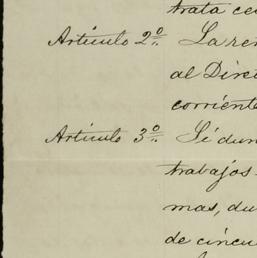 trata ce
Artículo 2º. La ren
al Dire
corriente
Artículo 3º. Si dun
trabajos
mas, du
de cincu